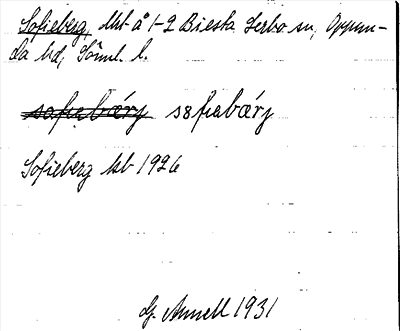 Sofieberg, lht å 1-2 Biesta Lerbo sn, Oppun-
da hd, Söml. l.
sofiabærj sofiabærj
Sofieberg kb 1926
G. Annell 1931